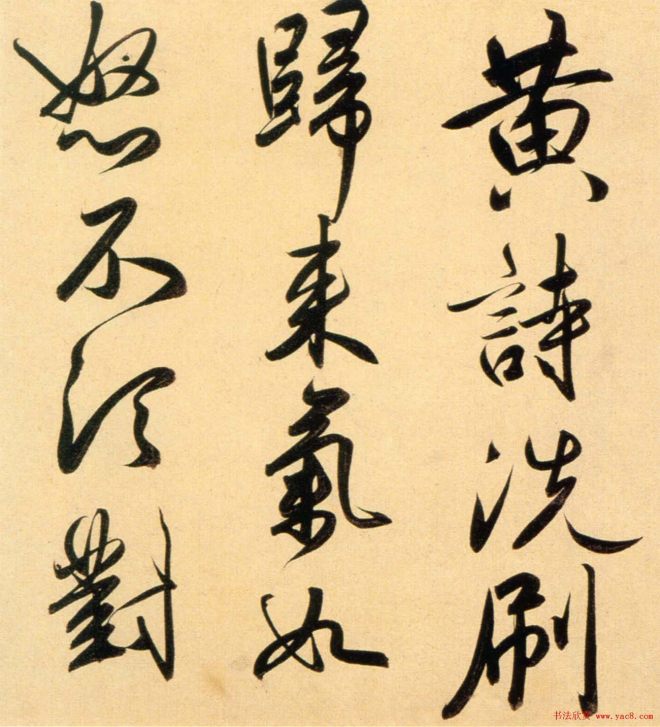 黄詩洗刷
歸来氣如
怒不須對
书法欣赏 www.yac8.com